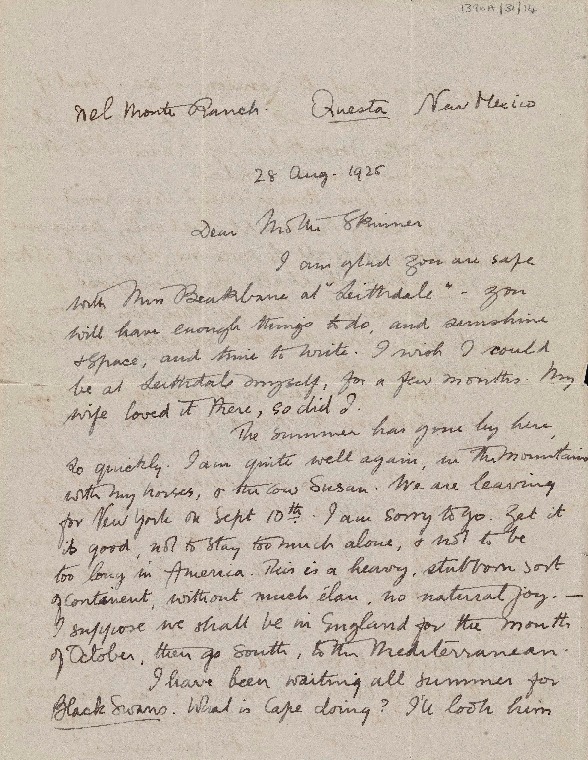 1396A/31/14
Del Monte Ranch. Questa New Mexico
28 Aug. 1925
Dear Mollie Skinner
I am glad you are safe
with Miss Beakbane at "Leithdale" - you
will have enough things to do, and sunshine
+ space, and time to write. I wish I could
be at Leithdale myself, for a few months. My
wife loved it there, so did I.
The summer has gone by here,
so quickly. I am quite well again, in the mountains
with my horses, & the cow Susan. We are leaving
for New York on Sept 10th. I am sorry to go. Yet it
is good, not to stay too much alone, & not to be
too long in America. This is a heavy, stubborn sort
of continent, without much élan, no natural joy. —
I suppose we shall be in England for the month
of October, then go South, to the Mediterranean.
I have been waiting all summer for
Black Swans. What is Cape doing? I'll look him